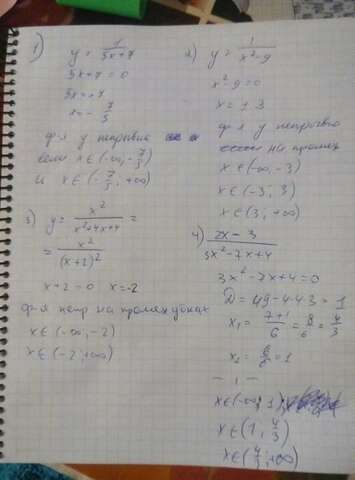 1) y = 7/(3x+7)
3x+7 = 0
3x = -7
x = -7/3
ф-я y непрерывна
если x ∈ (-∞, -7/3)
и x ∈ (-7/3; +∞)
2) y = 1/(x²-9)
x²-9 = 0
x = ±3
ф-я y непрерывна
на промеж
x ∈ (-∞, -3)
x ∈ (-3, 3)
x ∈ (3; +∞)
3) y = x²/(x²+4x+4) =
= x²/(x+2)²
x+2 = 0 x = -2
ф-я непр на промежутках
x ∈ (-∞, -2)
x ∈ (-2; +∞)
4) (2x-3)/(3x²-7x+4)
3x²-7x+4 = 0
D = 49-4·4·3 = 1
x₁ = (7+1)/6 = 8/6 = 4/3
x₂ = 6/6 = 1
— 1 —
x ∈ (-∞; 1)
x ∈ (1, 4/3)
x ∈ (4/3; +∞)